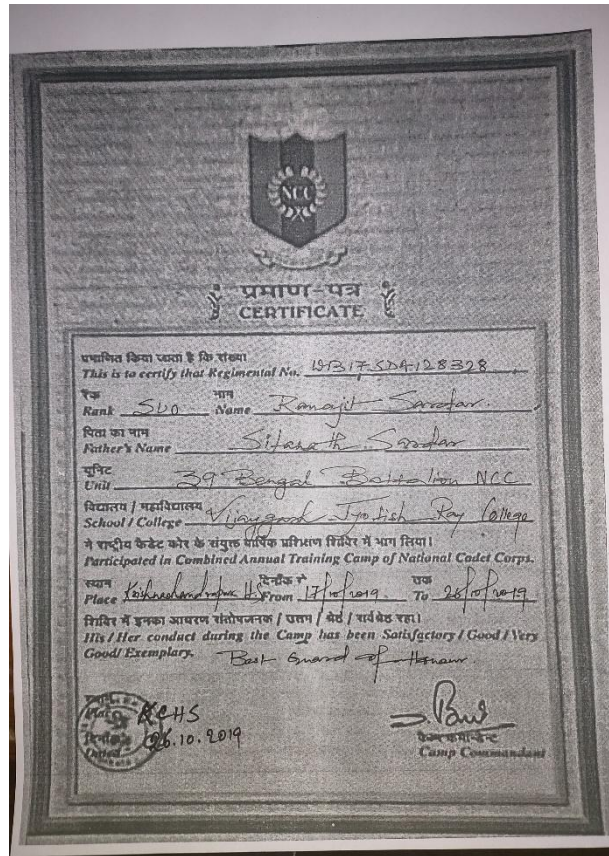 NCC
प्रमाण-पत्र
CERTIFICATE
प्रमाणित किया जाता है कि संख्या
This is to certify that Regimental No. WB17SDA128328
रैंक नाम
Rank SUO Name Ranajit Sardar.
पिता का नाम
Father's Name Sitanath Sardar
यूनिट
Unit 39 Bengal Battalion NCC
विद्यालय / महाविद्यालय
School / College Vijaygarh Jyotish Ray College
ने राष्ट्रीय कैडेट कोर के संयुक्त वार्षिक प्रशिक्षण शिविर में भाग लिया।
Participated in Combined Annual Training Camp of National Cadet Corps.
स्थान दिनाँक से तक
Place Krishnachandrapur H.S From 17/10/2019 To 26/10/2019
शिविर में इनका आचरण संतोषजनक / उत्तम / श्रेष्ठ / सर्वश्रेष्ठ रहा।
His / Her conduct during the Camp has been Satisfactory / Good / Very
Good / Exemplary. Best Guard of Honour.
Place KCHS
दिनाँक
Dated 26.10.2019
कैम्प कमान्डेन्ट
Camp Commandant